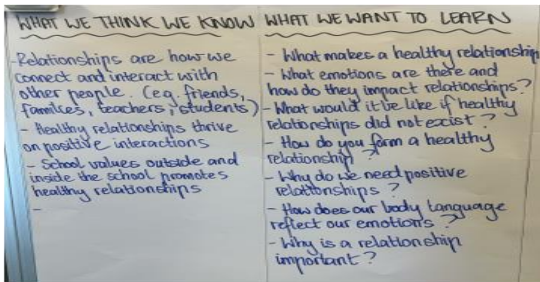 WHAT WE THINK WE KNOW
-Relationships are how we
connect and interact with
other people. (eg. friends,
families, teachers, students)
- Healthy relationships thrive
on positive interactions
- School values outside and
inside the school promotes
healthy relationships
-
WHAT WE WANT TO LEARN
- What makes a healthy relationship
- What emotions are there and
how do they impact relationships?
- What would it be like if healthy
relationships did not exist?
- How do you form a healthy
relationship?
- Why do we need positive
relationships?
- How does our body language
reflect our emotions?
- Why is a relationship
important?